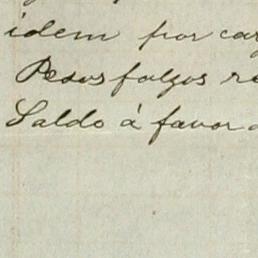 idem por car
Pesos falzos re
Saldo á favor